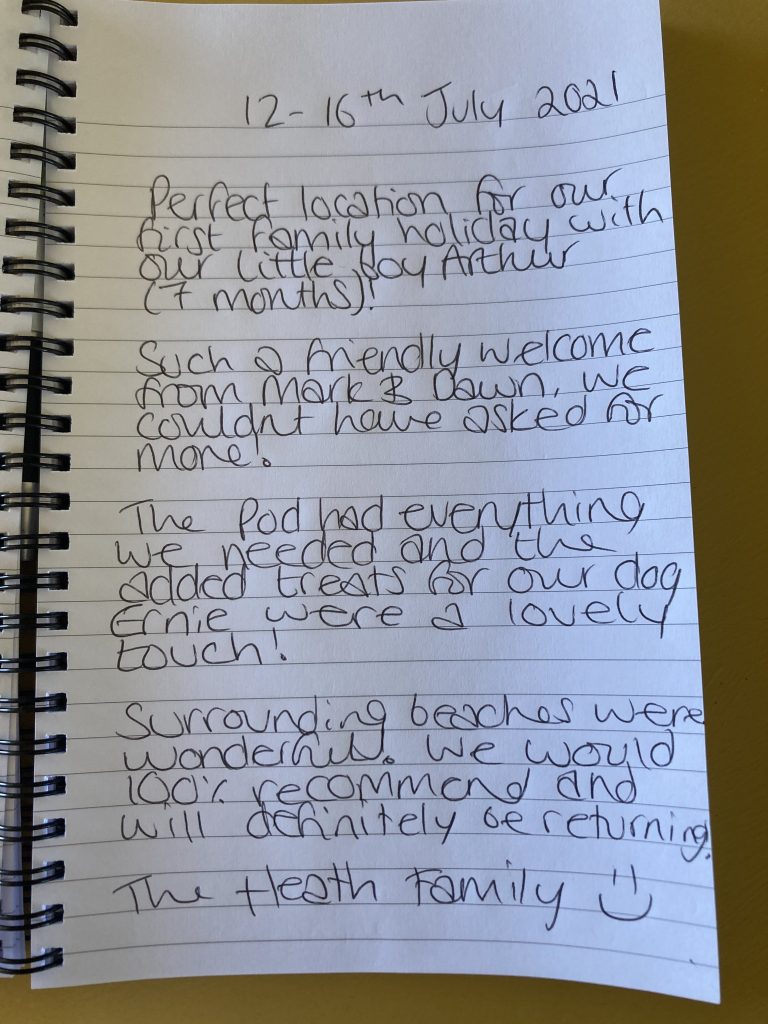 12-16th July 2021
Perfect location for our
first family holiday with
our little boy Arthur
(7 months)!
Such a friendly welcome
from Mark & Dawn, we
couldn't have asked for
more!
The Pod had everything
we needed and the
added treats for our dog
Ernie were a lovely
touch!
Surrounding beaches were
wonderful. We would
100% recommend and
will definitely be returning.
The Heath Family